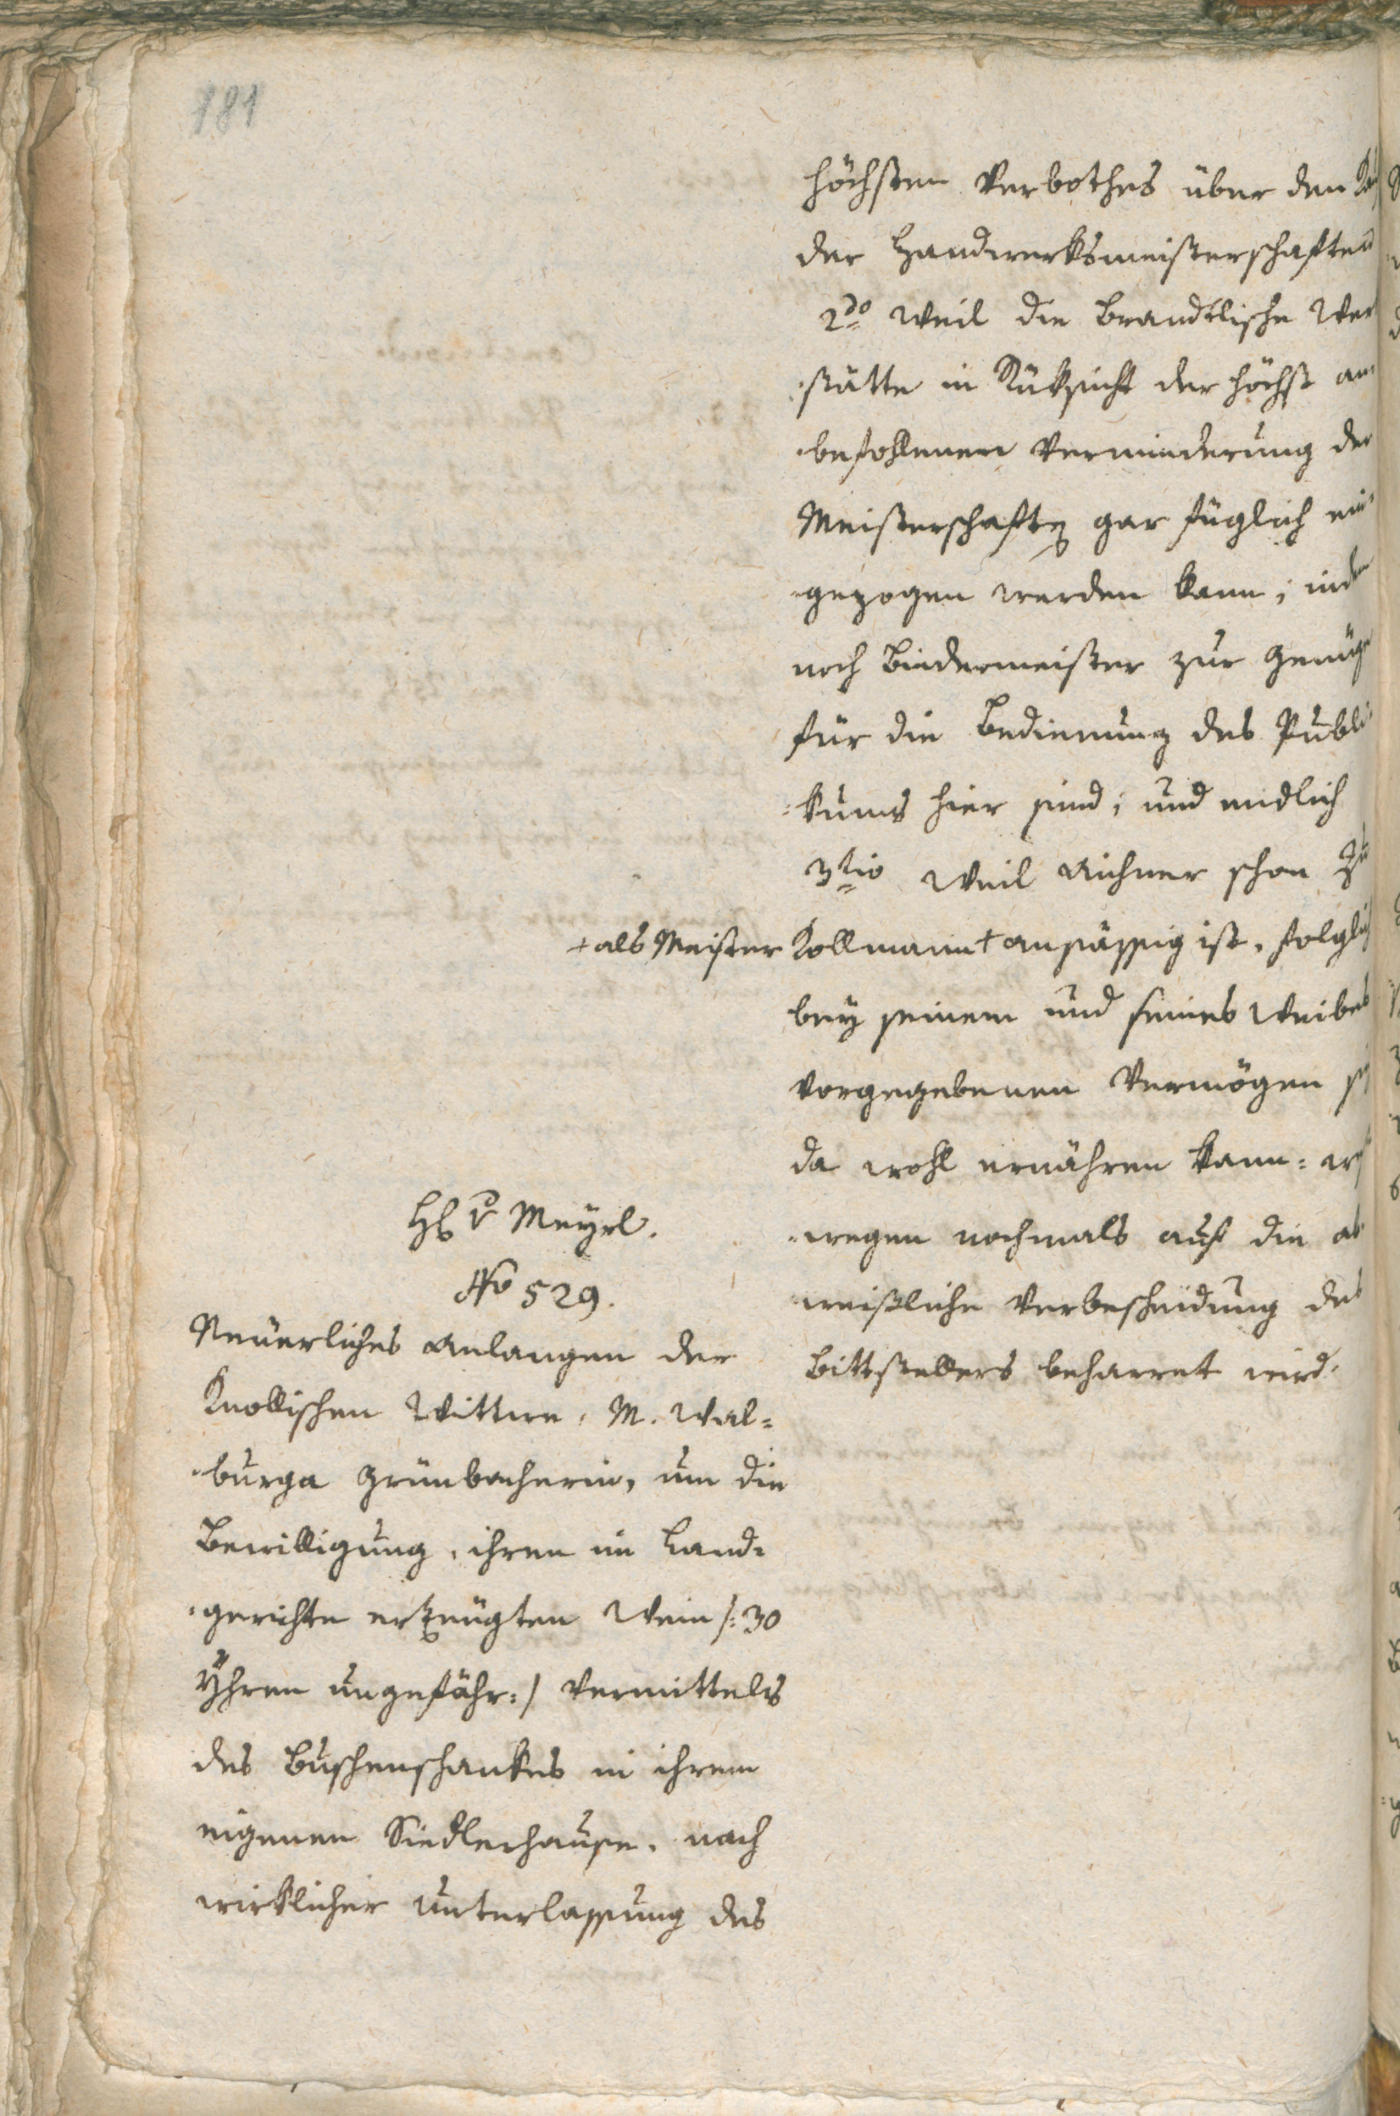 181
höchsten Verbothes über den
der Handwerksmeisterschaften
2do weil die Brandtlische Wer
stätte in Rüksicht der höchst an
befohlenen Verminderung der
Meisterschaften gar füglich ein
gezogen werden kann, indem
noch Bindermeister zur Genüge
für die Bedienung des Publi
kums hier sind, und endlich
3tio weil Aichner schon zu
Kollmann + ansässig ist, folglich
+ als Meister
bey seinem und seines Weibes
vorgegebenen Vermögen sich
da wohl ernähren kann:
wegen nochmals auf die ab
weißliche Verbescheidung des
Bittstellers beharret wird.
H. v Meyrl.
No 529.
Neuerliches Anlangen der
Knollischen Wittwe, M. Wal=
burga Grünbacherin, um die
Bewilligung, ihren im Land=
gerichte erzeugten Wein /: 30
Yhren ungefähr :/ vermittels
des Buschenschankes in ihrem
eigenen Siedlerhause, nach
wirklicher Unterlassung des